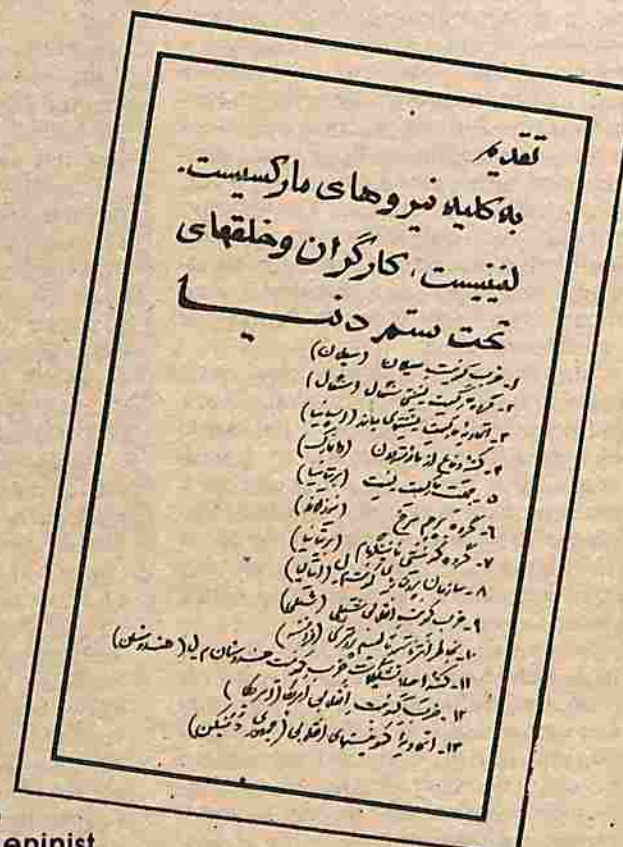 تقدیم
به کلیه نیروهای مارکسیست-
لنینیست، کارگران وخلقهای
تحت ستم دنیا
۱- حزب کمونیست سیلان (سیلان)
۲- گروه مارکسیست لنینیستی سنگال (سنگال)
۳- اتحادیه مارکسیست لنینیستهای (اسپانیا)
۴- کمیته دفاع از مائوتسه‌دون (دانمارک)
۵- مارکسیست لنینیست (بریتانیا)
۶- گروه پرچم سرخ (نیوزلاند)
۷- گروه کمونیستی ناتینگهام (بریتانیا)
۸- سازمان کمونیستی (ایتالیا)
۹- حزب کمونیست انقلابی شیلی (شیلی)
۱۰- بخاطر انترناسیونالیسم پرولتری (فرانسه)
۱۱- کمیته حزب کمونیست هندوستان م ل (هندوستان)
۱۲- حزب کمونیست انقلابی امریکا (امریکا)
۱۳- اتحادیه کمونیستهای انقلابی (جمهوری دومنیکن)
eninist